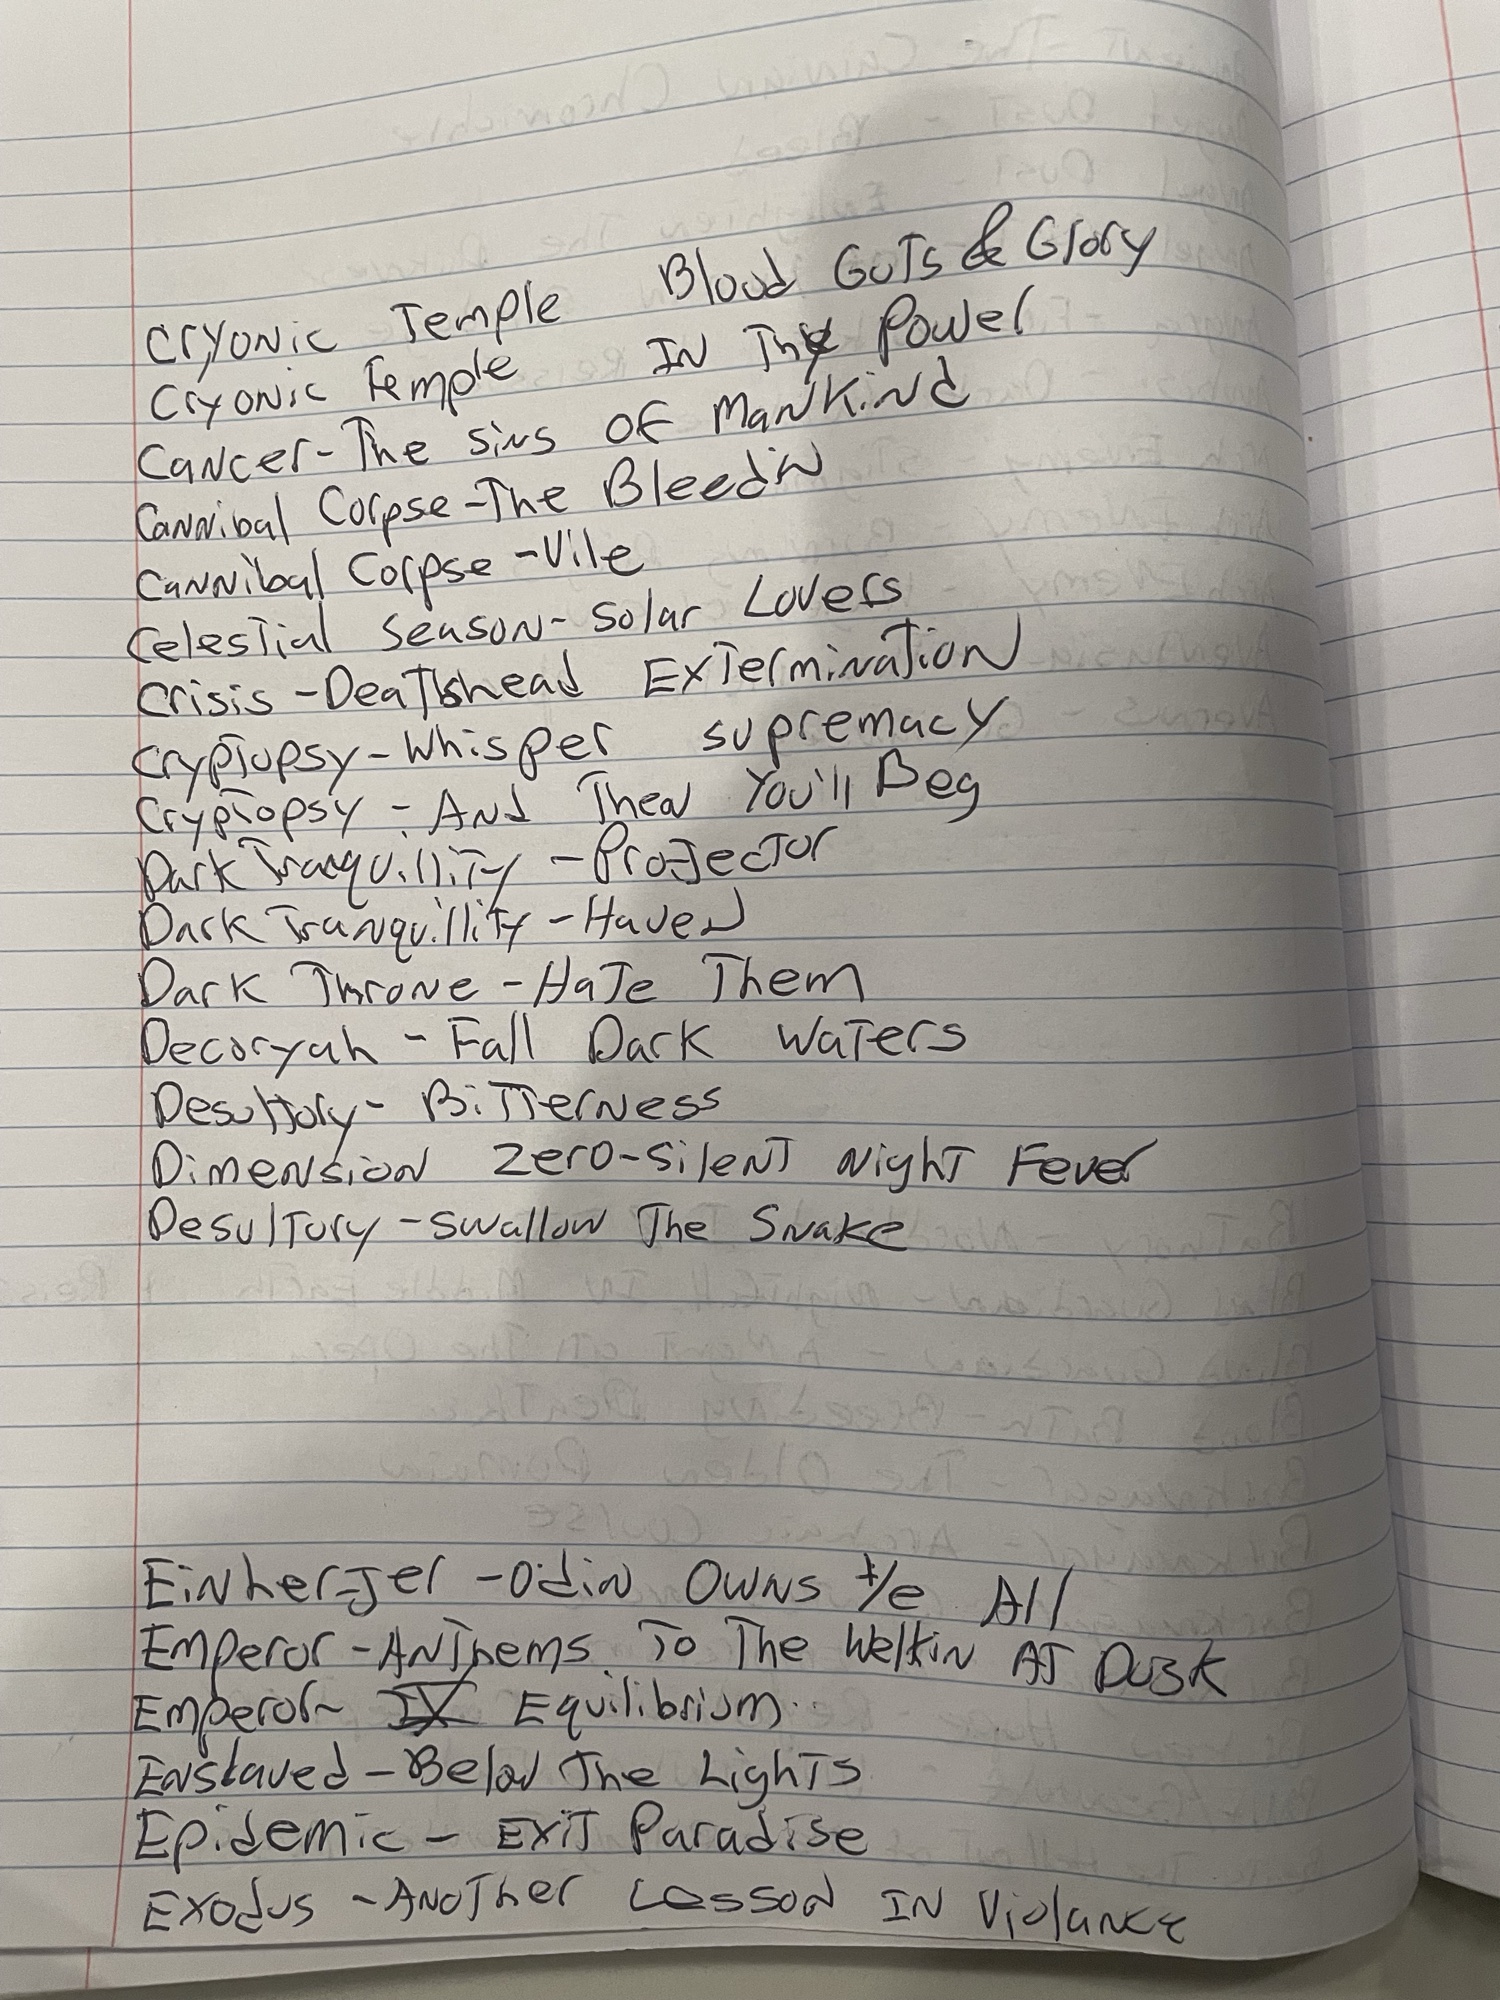 Cryonic Temple Blood Guts & Glory
Cryonic Temple In Thy Power
Cancer-The Sins Of Mankind
Cannibal Corpse-The Bleedin
Cannibal Corpse-Vile
Celestial Season-Solar Lovers
Crisis-Deathshead Extermination
Cryptopsy-Whisper supremacy
Cryptopsy-And Then You'll Beg
Dark Tranquillity-Projector
Dark Tranquillity-Haven
Dark Throne-Hate Them
Decoryah-Fall Dark Waters
Desultory-Bitterness
Dimension Zero-Silent Night Fever
Desultory-Swallow The Snake
Einherjer-Odin Owns Ye All
Emperor-Anthems To The Welkin At Dusk
Emperor-IX Equilibrium
Enslaved-Below The Lights
Epidemic-Exit Paradise
Exodus-Another Lesson In Violance